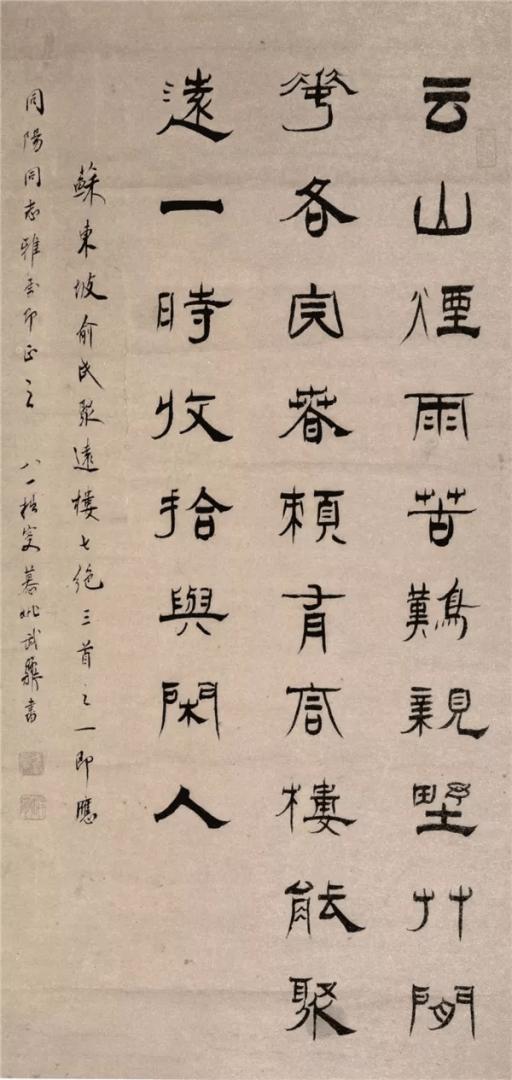 云山煙雨苦難親野艸閒
華各自春賴有高樓能聚
遠一時收拾與閑人
蘇東坡俞氏聚遠樓七絕三首之一即應
同陽同志雅命印正之 八一拙叟慕姚武書